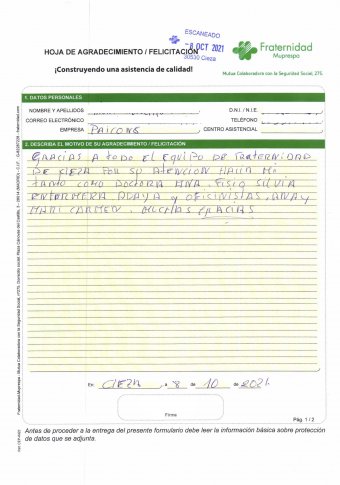 ESCANEADO
-8 OCT 2021
30530 Cieza
HOJA DE AGRADECIMIENTO / FELICITACIÓN
Fraternidad
Muprespa
¡Construyendo una asistencia de calidad!
Mutua Colaboradora con la Seguridad Social, 275
1. DATOS PERSONALES
NOMBRE Y APELLIDOS
D.N.I. / N.I.E.
CORREO ELECTRÓNICO
TELÉFONO
EMPRESA PAICONS
CENTRO ASISTENCIAL
2. DESCRIBA EL MOTIVO DE SU AGRADECIMIENTO / FELICITACIÓN
GRACIAS A TODO EL EQUIPO DE FRATERNIDAD
DE CIEZA POR SU ATENCION HACIA MI
TANTO COMO DOCTORA ANA, FISIO SILVIA
ENFERMERA OLAYA y OFICINISTAS, ANA y
MARI CARMEN. MUCHAS GRACIAS.
En CIEZA, a 8 de 10 de 2021.
Firma
Pág. 1 / 2
Antes de proceder a la entrega del presente formulario debe leer la información básica sobre protección
de datos que se adjunta.